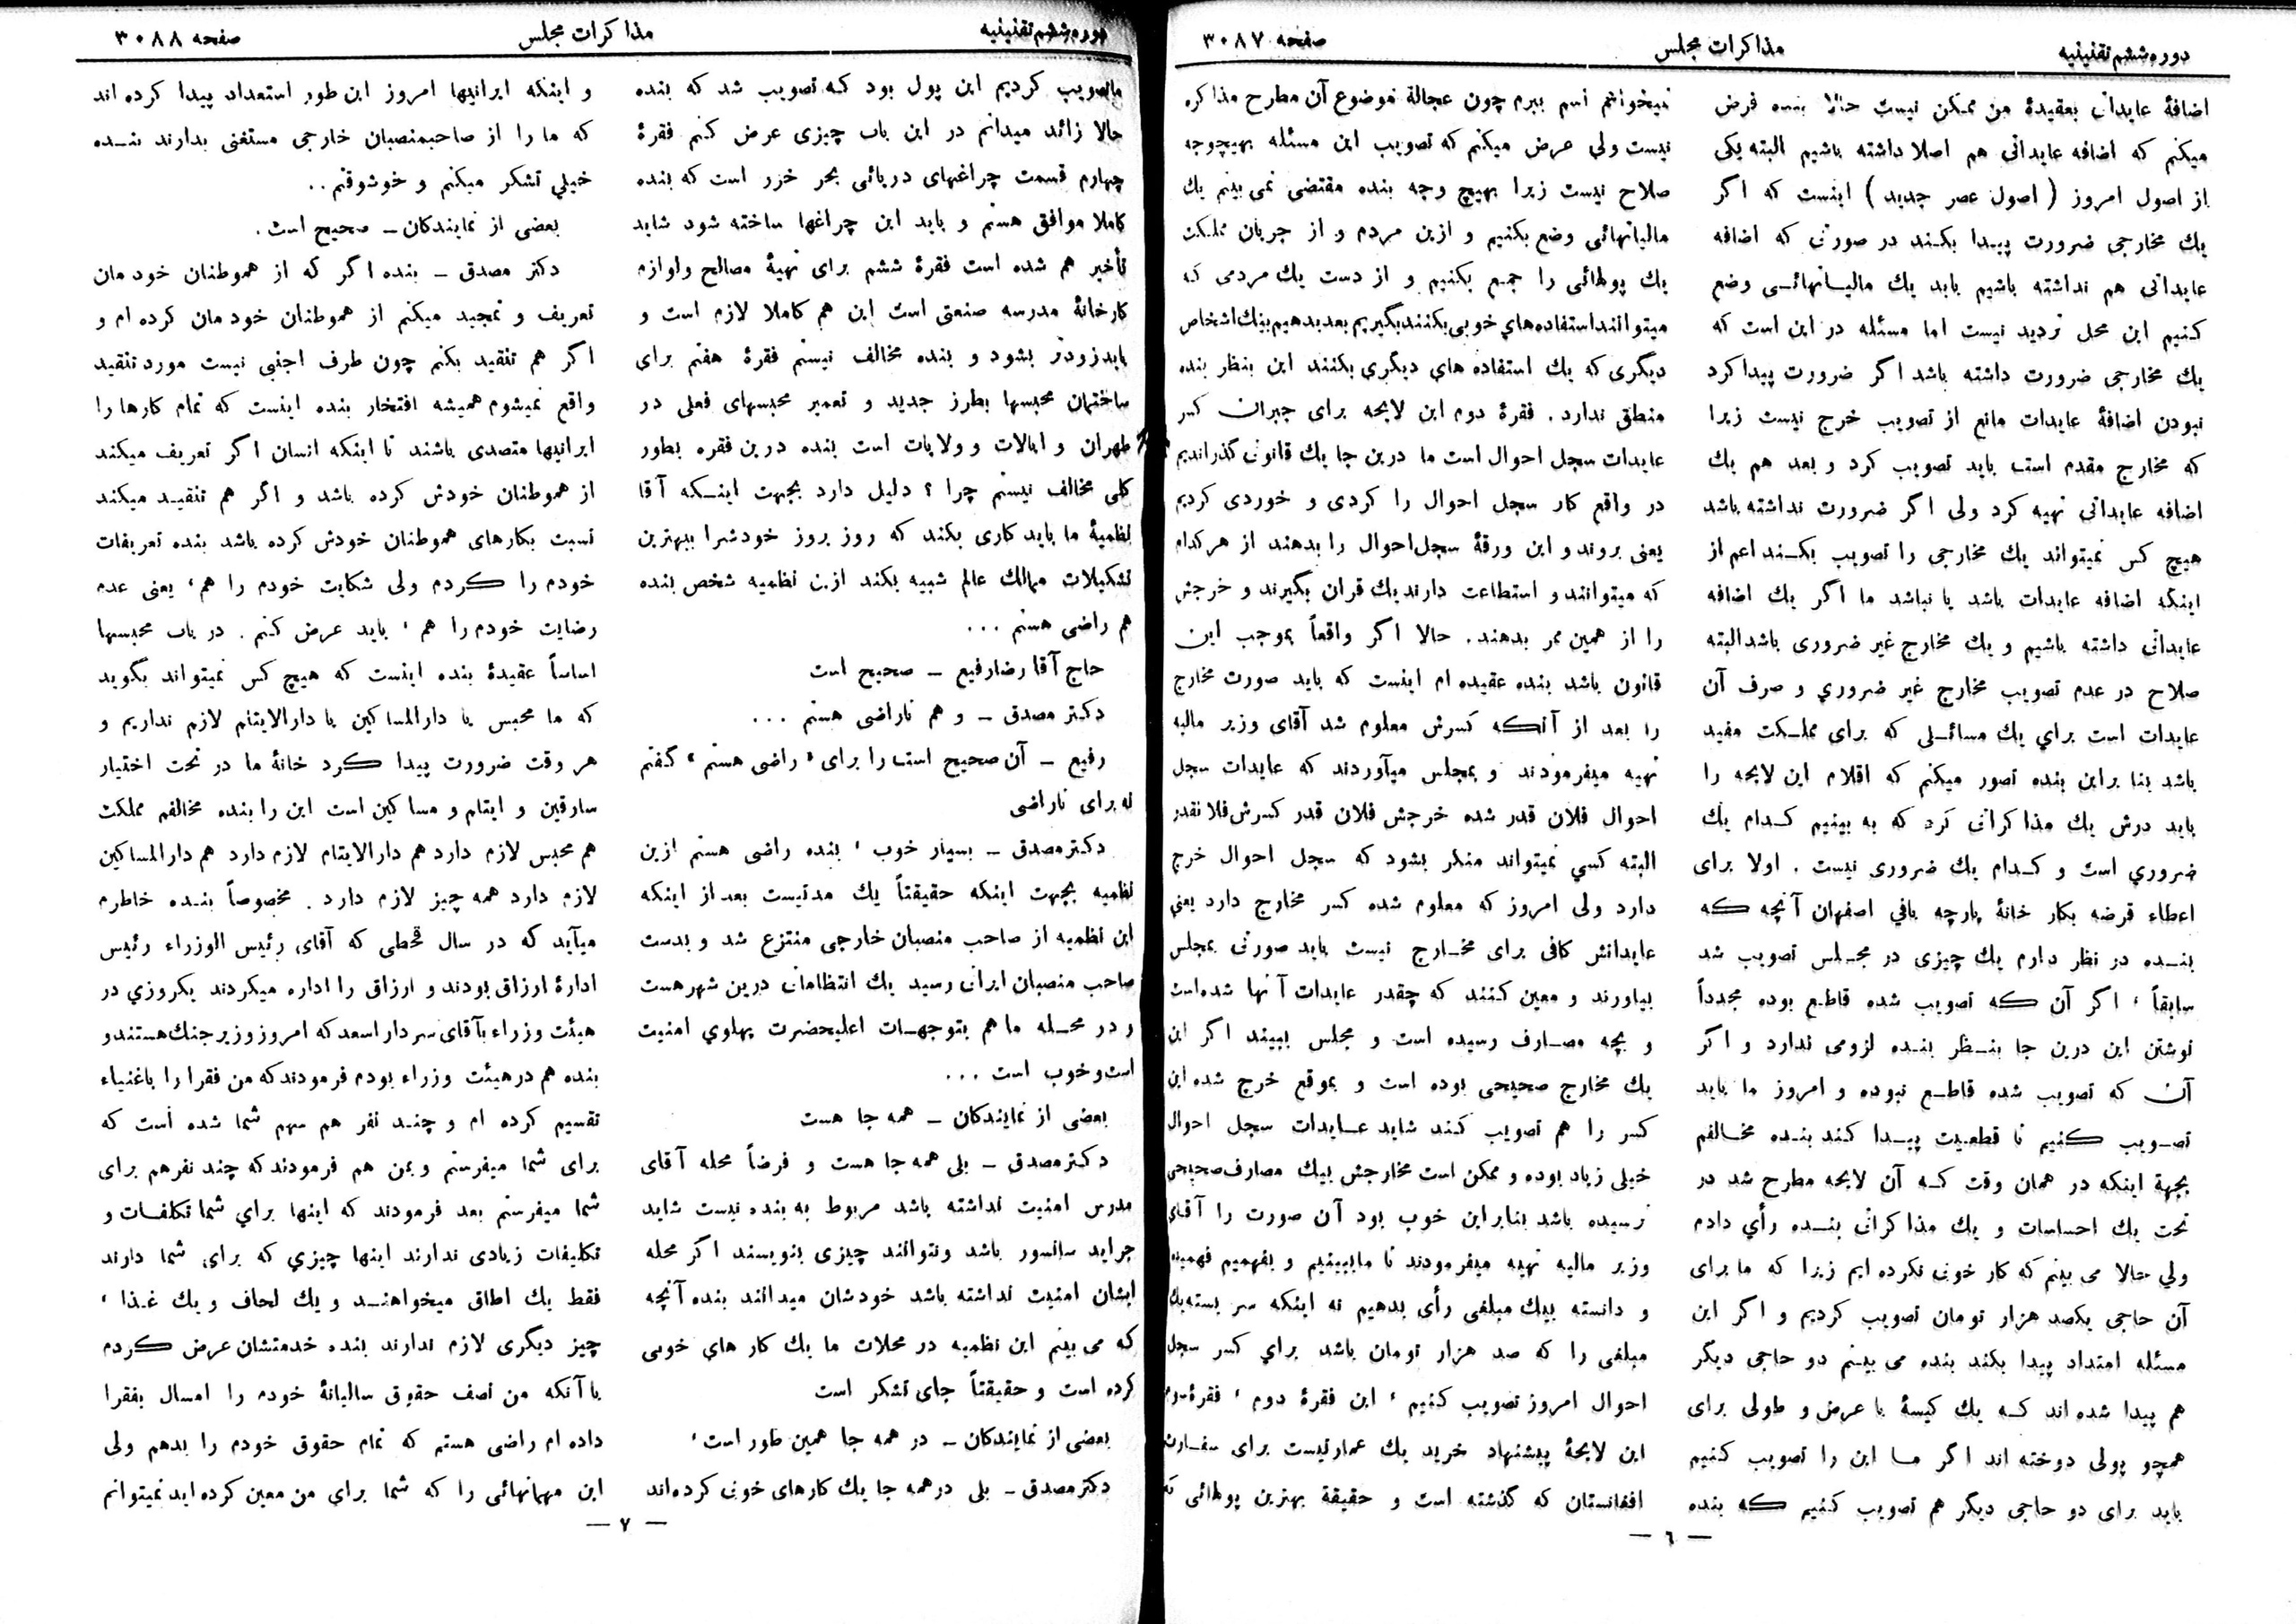 دوره ششم تقنینیه
مذاکرات مجلس
صفحه ۳۰۸۷
اضافهٔ عایداتی بعقیدهٔ من ممکن نیست حالا بنده فرض
میکنم که اضافه عایداتی هم اصلا داشته باشیم البته یکی
از اصول امروز ( اصول عصر جدید ) اینست که اگر
یك مخارجی ضرورت پیدا بکند در صورتی که اضافه
عایداتی هم نداشته باشیم باید یك مالیاتهائی وضع
کنیم این محل تردید نیست اما مسئله در این است که
یك مخارجی ضرورت داشته باشد اگر ضرورت پیدا کرد
نبودن اضافهٔ عایدات مانع از تصویب خرج نیست زیرا
که مخارج مقدم است باید تصویب کرد و بعد هم یك
اضافه عایداتی تهیه کرد ولی اگر ضرورت نداشته باشد
هیچ کس نمیتواند یك مخارجی را تصویب بکند اعم از
اینکه اضافه عایدات باشد یا نباشد ما اگر یك اضافه
عایداتی داشته باشیم و یك مخارج غیر ضروری باشد البته
صلاح در عدم تصویب مخارج غیر ضروري و صرف آن
عایدات است براي یك مسائلی که برای مملکت مفید
باشد بنا براین بنده تصور میکنم که اقلام این لایحه را
باید درش یك مذاکراتی کرد که به بینیم کدام یك
ضروري است و کدام یك ضروری نیست . اولا برای
اعطاء قرضه بکار خانهٔ پارچه بافي اصفهان آنچه که
بنده در نظر دارم یك چیزی در مجلس تصویب شد
سابقاً ، اگر آن که تصویب شده قاطع بوده مجدداً
نوشتن این درین جا بنظر بنده لزومی ندارد و اگر
آن که تصویب شده قاطع نبوده و امروز ما باید
تصویب کنیم تا قطعیت پیدا کند بنده مخالفم
بجهة اینکه در همان وقت که آن لایحه مطرح شد در
تحت یك احساسات و یك مذاکراتی بنده رأي دادم
ولي حالا می بینم که کار خوبی نکرده ایم زیرا که ما برای
آن حاجی یکصد هزار تومان تصویب کردیم و اگر این
مسئله امتداد پیدا بکند بنده می بینم دو حاجی دیگر
هم پیدا شده اند که یك کیسهٔ با عرض و طولی برای
همچو پولی دوخته اند اگر ما این را تصویب کنیم
باید برای دو حاجی دیگر هم تصویب کنیم که بنده
نمیخواهم اسم ببرم چون عجالة موضوع آن مطرح مذاکره
نیست ولي عرض میکنم که تصویب این مسئله بهیچوجه
صلاح نیست زیرا بهیچ وجه بنده مقتضی نمی بینم یك
مالیاتهائی وضع بکنیم و ازین مردم و از جریان مملکت
یك پولهائی را جمع بکنیم و از دست یك مردمی که
میتوانند استفاده هاي خوبی بکنند بگیریم بعد بدهیم بیك اشخاص
دیگری که یك استفاده های دیگري بکنند این بنظر بنده
منطق ندارد . فقرهٔ دوم این لایحه برای جبران کسر
عایدات سجل احوال است ما درین جا یك قانونی گذراندیم
در واقع کار سجل احوال را کردی و خوردی کردیم
یعنی بروند و این ورقهٔ سجل احوال را بدهند از هر کدام
که میتوانند و استطاعت دارند یك قران بگیرند و خرجش
را از همین ممر بدهند . حالا اگر واقعاً بموجب این
قانون باشد بنده عقیده ام اینست که باید صورت مخارج
را بعد از آنکه کسرش معلوم شد آقای وزیر مالیه
تهیه میفرمودند و بمجلس میآوردند که عایدات سجل
احوال فلان قدر شده خرجش فلان قدر کسرش فلانقدر
البته کسي نمیتواند منکر بشود که سجل احوال خرج
دارد ولی امروز که معلوم شده کسر مخارج دارد یعني
عایداتش کافی برای مخارج نیست باید صورتی بمجلس
بیاورند و معین کنند که چقدر عایدات آنها شده است
و بچه مصارف رسیده است و مجلس ببیند اگر این
یك مخارج صحیحی بوده است و بموقع خرج شده این
کسر را هم تصویب کند شاید عایدات سجل احوال
خیلی زیاد بوده و ممکن است مخارجش بیك مصارف صحیحی
نرسیده باشد بنابراین خوب بود آن صورت را آقای
وزیر مالیه تهیه میفرمودند تا ما ببینیم و بفهمیم فهمیده
و دانسته بیك مبلغی رأی بدهیم نه اینکه سر بسته یك
مبلغی را که صد هزار تومان باشد براي کسر سجل
احوال امروز تصویب کنیم ، این فقرهٔ دوم ، فقرهٔ سوم
این لایحهٔ پیشنهاد خرید یك عمارتیست برای سفارت
افغانستان که گذشته است و حقیقة بهترین پولهائی که
— ٦ —
دوره ششم تقنینیه
مذاکرات مجلس
صفحه ۳۰۸۸
ما تصویب کردیم این پول بود که تصویب شد که بنده
حالا زائد میدانم در این باب چیزی عرض کنم فقرهٔ
چهارم قسمت چراغهای دریائی بحر خزر است که بنده
کاملا موافق هستم و باید این چراغها ساخته شود شاید
تأخیر هم شده است فقرهٔ ششم برای تهیهٔ مصالح و لوازم
کارخانهٔ مدرسه صنعتی است این هم کاملا لازم است و
باید زودتر بشود و بنده مخالف نیستم فقرهٔ هفتم برای
ساختمان محبسها بطرز جدید و تعمیر محبسهای فعلی در
طهران و ایالات و ولایات است بنده درین فقره بطور
کلی مخالف نیستم چرا ؟ دلیل دارد بجهت اینکه آقا
نظمیهٔ ما باید کاری بکند که روز بروز خودشرا ببهترین
تشکیلات ممالك عالم شبیه بکند ازین نظمیه شخص بنده
هم راضی هستم ...
حاج آقا رضا رفیع ـ صحیح است
دکتر مصدق ـ و هم ناراضی هستم ...
رفیع ـ آن صحیح است را برای «راضی هستم» گفتم
نه برای ناراضی
دکتر مصدق ـ بسیار خوب ، بنده راضی هستم ازین
نظمیه بجهت اینکه حقیقتاً یك مدتیست بعد از اینکه
این نظمیه از صاحب منصبان خارجی منتزع شد و بدست
صاحب منصبان ایرانی رسید یك انتظاماتی درین شهر هست
و در محله ما هم بتوجهات اعلیحضرت پهلوي امنیت
است و خوب است ...
بعضی از نمایندکان ـ همه جا هست
دکتر مصدق ـ بلی همه جا هست و فرضاً محله آقای
مدرس امنیت نداشته باشد مربوط به بنده نیست شاید
جراید سانسور باشد و نتوانند چیزی بنویسند اگر محله
ایشان امنیت نداشته باشد خودشان میدانند بنده آنچه
که می بینم این نظمیه در محلات ما یك کار هاي خوبی
کرده است و حقیقتاً جای تشکر است
بعضی از نمایندکان ـ در همه جا همین طور است ،
دکتر مصدق ـ بلی در همه جا یك کارهای خوبی کرده اند
و اینکه ایرانیها امروز این طور استعداد پیدا کرده اند
که ما را از صاحبمنصبان خارجی مستغنی بدارند بنده
خیلي تشکر میکنم و خوشوقتم ..
بعضی از نمایندکان ـ صحیح است .
دکتر مصدق ـ بنده اگر که از هموطنان خودمان
تعریف و تمجید میکنم از هموطنان خودمان کرده ام و
اگر هم تنقید بکنم چون طرف اجنبی نیست مورد تنقید
واقع نمیشوم همیشه افتخار بنده اینست که تمام کارها را
ایرانیها متصدی باشند تا اینکه انسان اگر تعریف میکند
از هموطنان خودش کرده باشد و اگر هم تنقید میکند
نسبت بکارهای هموطنان خودش کرده باشد بنده تعریفات
خودم را کردم ولی شکایت خودم را هم ، یعنی عدم
رضایت خودم را هم ، باید عرض کنم . در باب محبسها
اساساً عقیدهٔ بنده اینست که هیچ کس نمیتواند بگوید
که ما محبس یا دارالمساکین یا دارالایتام لازم نداریم و
هر وقت ضرورت پیدا کرد خانهٔ ما در تحت اختیار
سارقین و ایتام و مساکین است این را بنده مخالفم مملکت
هم محبس لازم دارد هم دارالایتام لازم دارد هم دارالمساکین
لازم دارد همه چیز لازم دارد . مخصوصاً بنده خاطرم
میآید که در سال قحطی که آقای رئیس الوزراء رئیس
ادارهٔ ارزاق بودند و ارزاق را اداره میکردند یکروزي در
هیئت وزراء بآقای سردار اسعد که امروز وزیر جنك هستند و
بنده هم در هیئت وزراء بودم فرمودند که من فقرا را باغنیاء
تقسیم کرده ام و چند نفر هم سهم شما شده است که
برای شما میفرستم و بمن هم فرمودند که چند نفر هم برای
شما میفرستم بعد فرمودند که اینها براي شما تکلفات و
تکلیفات زیادی ندارند اینها چیزي که برای شما دارند
فقط یك اطاق میخواهند و یك لحاف و یك غذا ،
چیز دیگری لازم ندارند بنده خدمتشان عرض کردم
با آنکه من نصف حقوق سالیانهٔ خودم را امسال بفقرا
داده ام راضی هستم که تمام حقوق خودم را بدهم ولی
این مهمانهائی را که شما براي من معین کرده اید نمیتوانم
— ٧ —